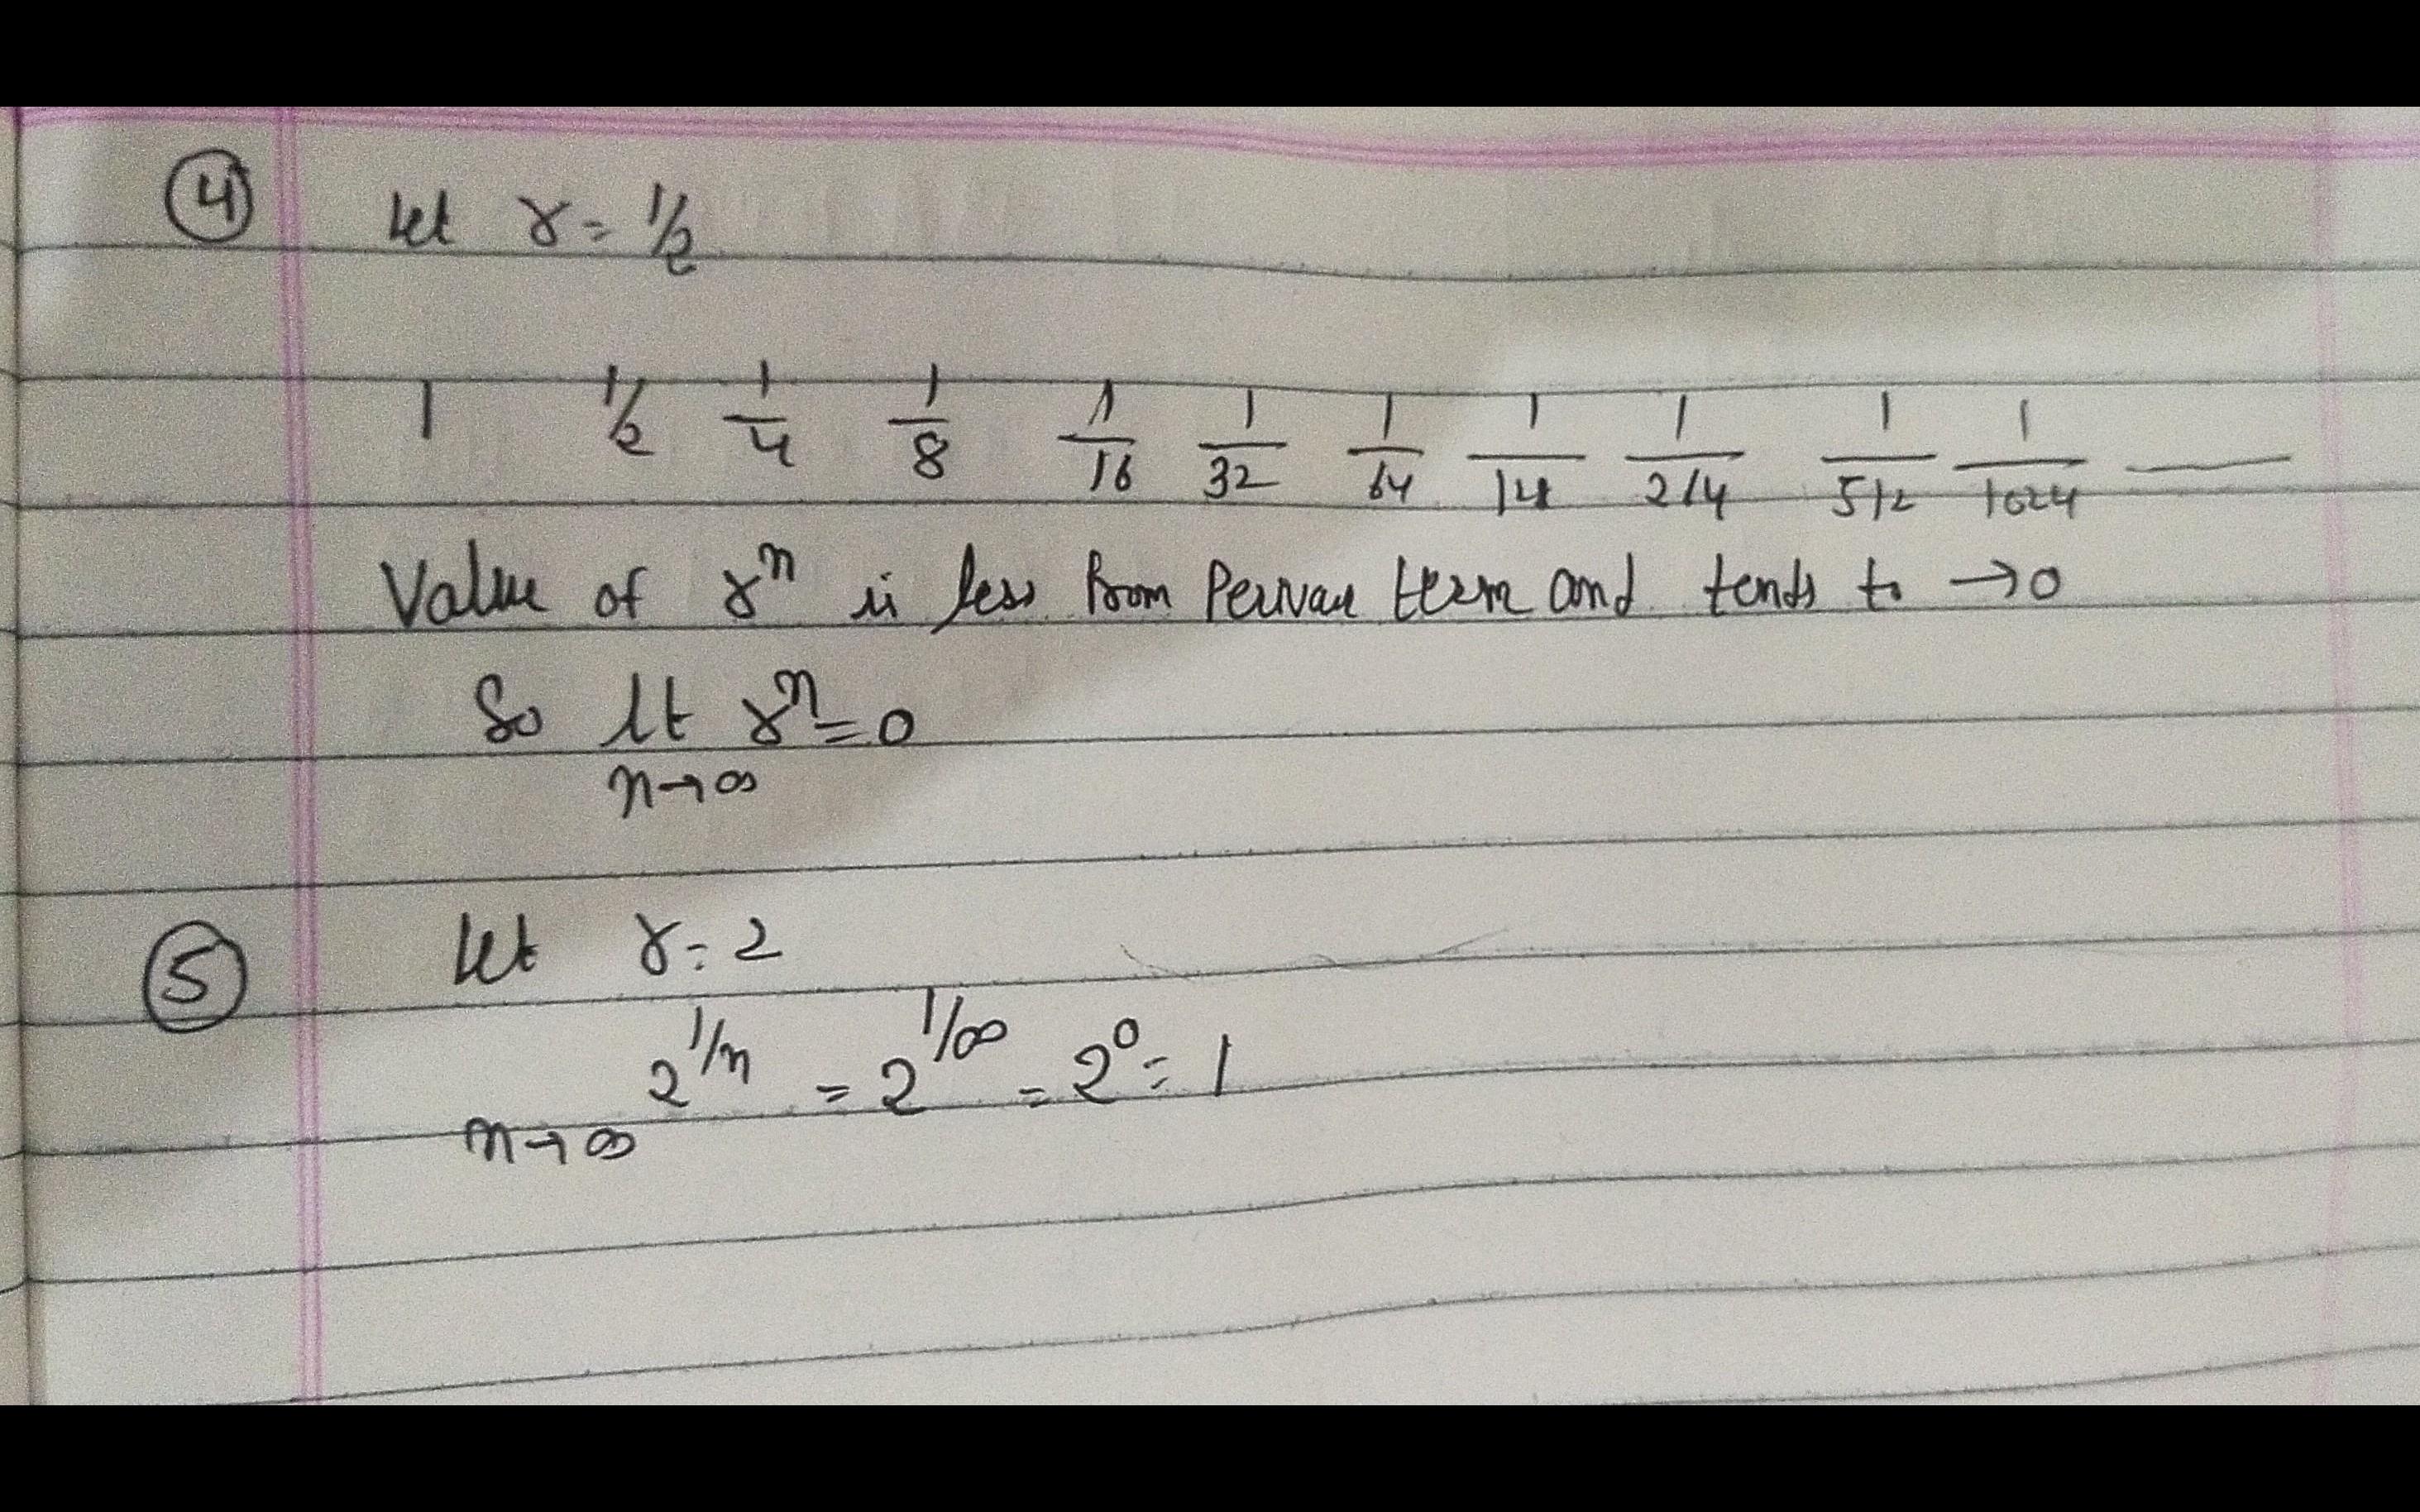 ④ let r = 1/2
1 1/2 1/4 1/8 1/16 1/32 1/64 1/14 1/214 1/512 1/1024 ——
Value of rⁿ is less from term and tends to → 0
So lt rⁿ = 0
n→∞
⑤ let r = 2
2^1/n = 2^1/∞ = 2⁰ = 1
n→∞